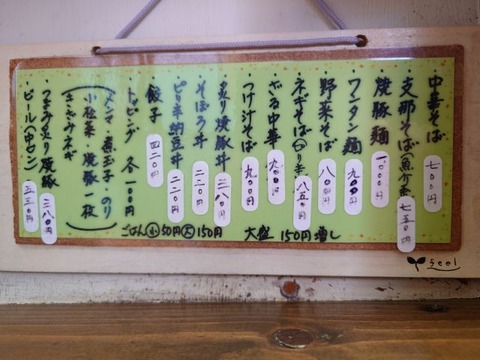 中華そば 七〇〇円
・支那そば(魚介系) 七五〇円
焼豚麺 一〇〇〇円
・ワンタン麺 九〇〇円
・野菜そば 八〇〇円
・ネギそば 八五〇円
・ざる中華 九〇〇円
・つけ汁そば 九〇〇円
・炙り焼豚丼 三八〇円
・そぼろ丼 二二〇円
・ピリ辛納豆丼 二二〇円
・餃子 四二〇円
・トッピング 各一〇〇円
メンマ・煮玉子・のり
小松菜・焼豚一枚
きざみネギ
・つまみ炙り焼豚 三八〇円
・ビール(中ビン) 五五〇円
ごはん 小 50円 大 150円
大盛 150円増し
feel